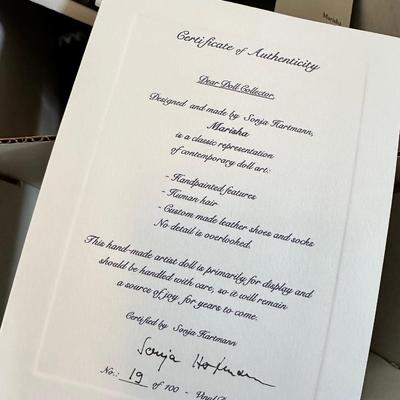 Marisha
Certificate of Authenticity
Dear Doll Collector,
Designed and made by Sonja Hartmann,
Marisha
is a classic representation
of contemporary doll art:
- Handpainted features
- Human hair
- Custom made leather shoes and socks
No detail is overlooked.
This hand-made artist doll is primarily for display and
should be handled with care, so it will remain
a source of joy for years to come.
Certified by Sonja Hartmann
Sonja Hartmann
No.: 19 of 100 - Vinyl